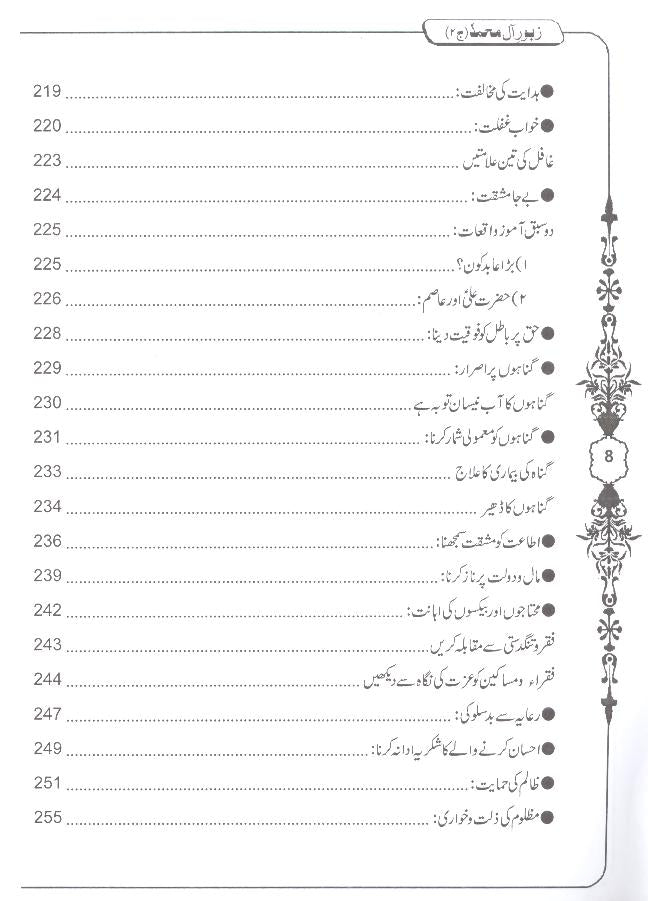 زبور آل محمدؐ (ج ۲)
● ہدایت کی مخالفت: 219
● خواب غفلت: 220
غافل کی تین علامتیں 223
● بے جا مشقت: 224
دو سبق آموز واقعات: 225
۱) بڑا عابد کون؟ 225
۲) حضرت علیؑ اور عاصم: 226
● حق پر باطل کو فوقیت دینا: 228
● گناہوں پر اصرار: 229
گناہوں کا آب نیسان توبہ ہے 230
● گناہوں کو معمولی شمار کرنا: 231
گناہ کی بیماری کا علاج 233
گناہوں کا ڈھیر 234
● اطاعت کو مشقت سمجھنا: 236
● مال و دولت پر ناز کرنا: 239
● محتاجوں اور بیکسوں کی اہانت: 242
فقر و تنگدستی سے مقابلہ کریں 243
فقراء و مساکین کو عزت کی نگاہ سے دیکھیں 244
● رعایہ سے بدسلوکی: 247
● احسان کرنے والے کا شکریہ ادا نہ کرنا: 249
● ظالم کی حمایت: 251
● مظلوم کی ذلت و خواری: 255
8